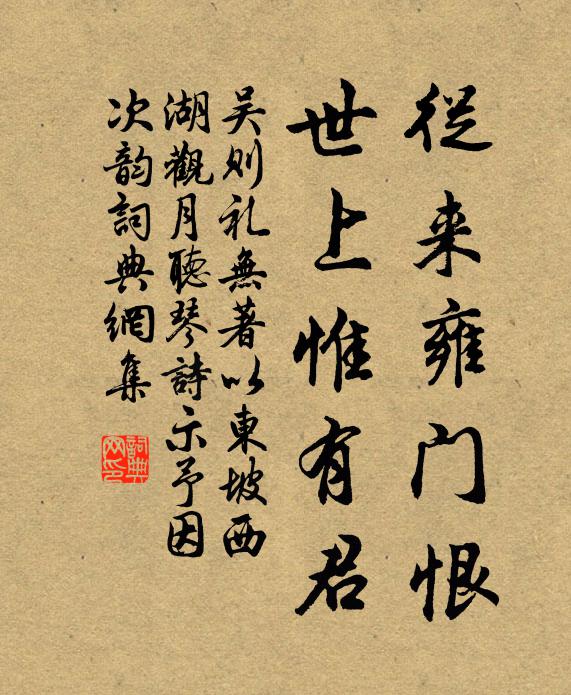 從来雍门恨
世上惟有君
吴则礼無著以東坡西
湖觀月聽琴詩示予因
次韵詞典網集
詞典
网印